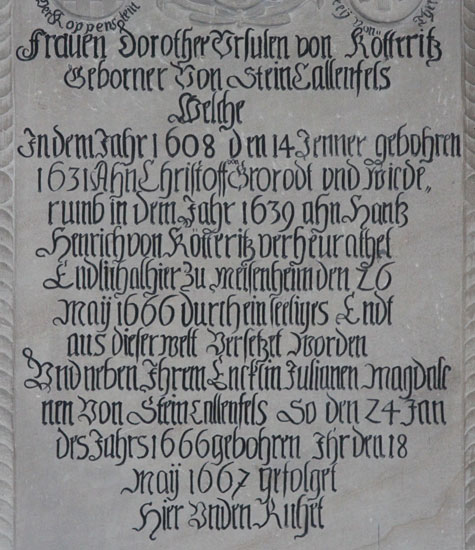 Von Koppenstein
Frauen Dorother Ursulen von Kötteritz
Geborner Von Stein Callenfels
Welche
In dem Jahr 1608 den 14 Jenner gebohren
1631 Ahn Christoff von Grorodt und Wiede„
rumb in dem Jahr 1639 ahn Hanß
Henrich von Kötteritz verheurathet
Endlich alhier Zu Meisenheim den 26
Maÿ 1666 durch ein seeliges Endt
aus dieser welt Versetzet worden
Und neben Ihrem Encklin Julianen Magdale
nen Von Stein Callenfels So den 24 Jan
des Jahrs 1666 gebohren Ihr den 18
Maÿ 1667 gefolget
Hier Unden Ruhet